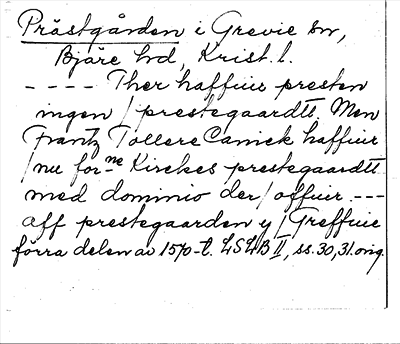 Prästgården i Grevie sn,
Bjäre hd, Krist. l.
---- Ther haffuer presten
ingen / prestegaardtt. Men
Frantz Tollere Canick haffuer
/ nu forne Kirckes prestegaardtt
med dominio der / offuer. ---
aff prestegaarden y / Greffuie
förra delen av 1570-t. LSLB II, ss. 30, 31. orig.